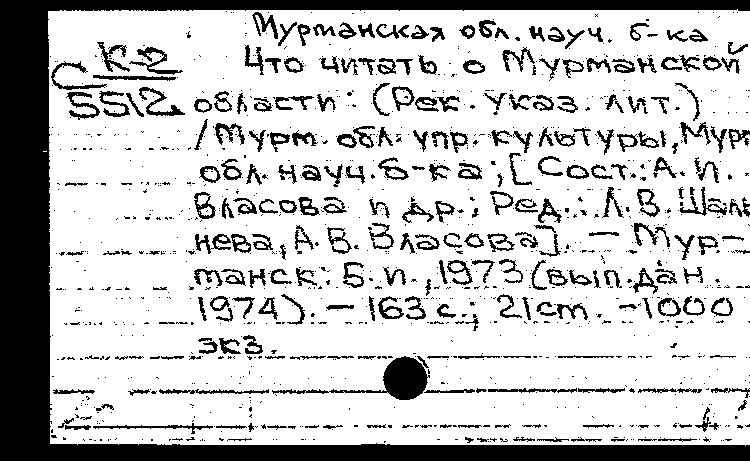 Мурманская обл. науч. б-ка
С К-2
5512
Что читать о Мурманской
области: (Рек. указ. лит.)
/Мурм. обл. упр. культуры, Мурм
обл. науч. б-ка; [Сост.: А. И.
Власова и др.; Ред.: Л. В. Шаль
нева, А. В. Власова]. — Мур-
манск: Б. и., 1973 (вып. дан.
1974). — 163 с.; 21 cm. - 1000
экз.